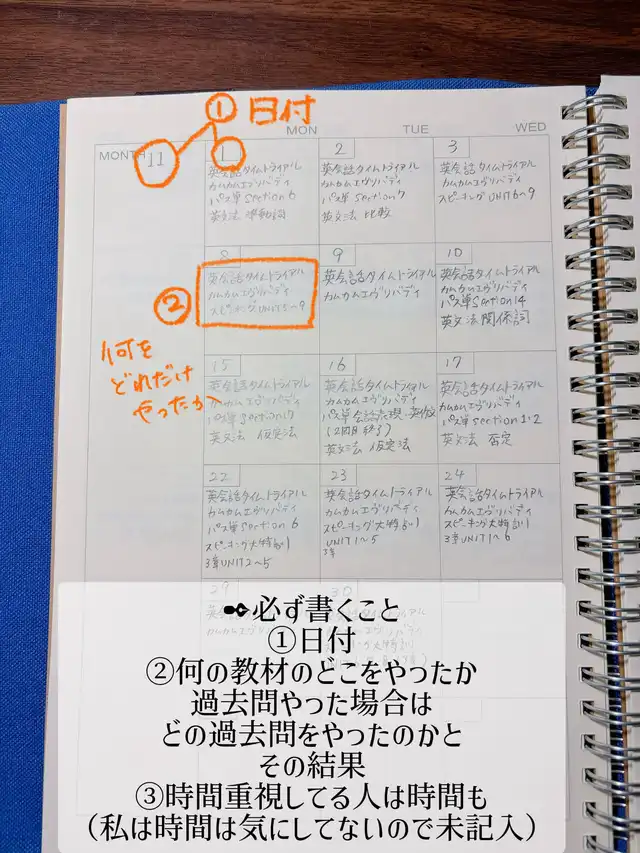 ① 日付
MON
TUE
WED
MONTH 11
1
英会話タイムトライアル
カムカムエヴリバディ
パス単 Section 6
英文法 準動詞
2
英会話タイムトライアル
カムカムエヴリバディ
パス単 Section 7
英文法 比較
3
英会話タイムトライアル
カムカムエヴリバディ
スピーキング UNIT6〜9
②
何を
どれだけ
やったか
8
英会話タイムトライアル
カムカムエヴリバディ
スピーキング UNIT5〜9
9
英会話タイムトライアル
カムカムエヴリバディ
10
英会話タイムトライアル
カムカムエヴリバディ
パス単 Section 14
英文法 関係詞
15
英会話タイムトライアル
カムカムエヴリバディ
パス単 Section
英文法 仮定法
16
英会話タイムトライアル
カムカムエヴリバディ
パス単 会話表現
(2回目終了)
英文法 仮定法
17
英会話タイムトライアル
カムカムエヴリバディ
パス単 Section 1·2
英文法 否定
22
英会話タイムトライアル
カムカムエヴリバディ
パス単 Section 6
スピーキング大特訓
3章UNIT2〜5
23
英会話タイムトライアル
カムカムエヴリバディ
スピーキング大特訓
UNIT1〜5
3章
24
英会話タイムトライアル
カムカムエヴリバディ
スピーキング大特訓
3章UNIT1〜6
29
30
✒必ず書くこと
①日付
②何の教材のどこをやったか
過去問やった場合は
どの過去問をやったのかと
その結果
③時間重視してる人は時間も
(私は時間は気にしてないので未記入)